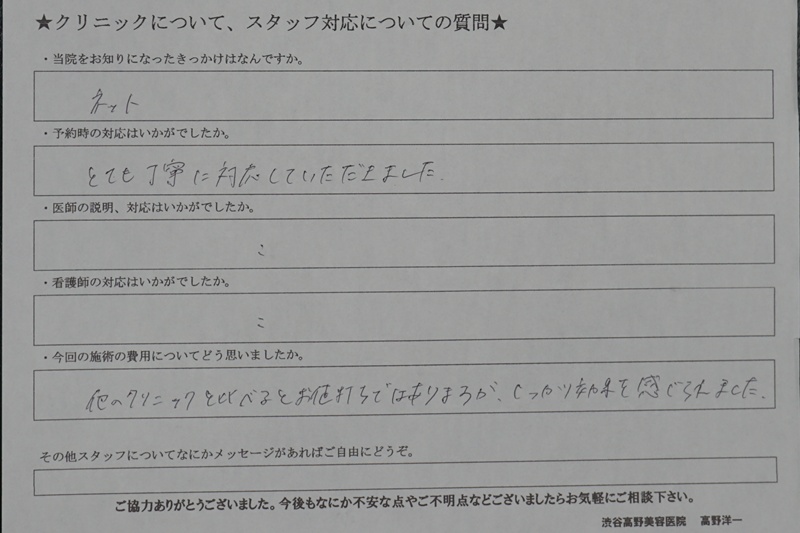 ★クリニックについて、スタッフ対応についての質問★
・当院をお知りになったきっかけはなんですか。
ネット
・予約時の対応はいかがでしたか。
とても丁寧に対応していただきました.
・医師の説明、対応はいかがでしたか。
〃
・看護師の対応はいかがでしたか。
〃
・今回の施術の費用についてどう思いましたか。
他のクリニックと比べるとお値打ちではありますが、しっかり効果を感じられました.
その他スタッフについてなにかメッセージがあればご自由にどうぞ。
ご協力ありがとうございました。今後もなにか不安な点やご不明点などございましたらお気軽にご相談下さい。
渋谷高野美容医院 高野洋一